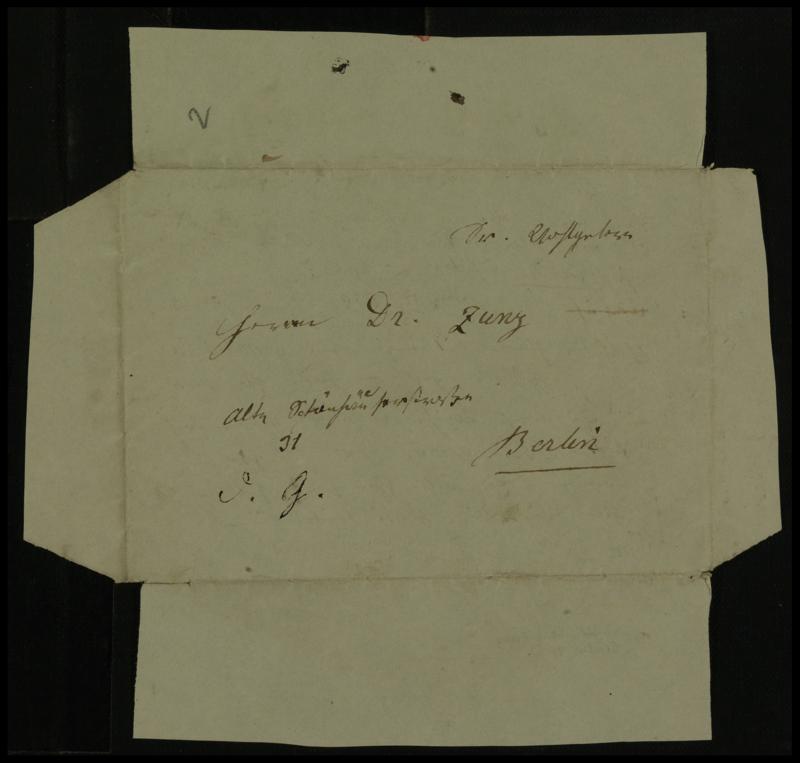 2
Sr. Wohlgeborn
Herrn Dr. Zunz
alte Schönhauserstrasse
31
Berlin
d. G.